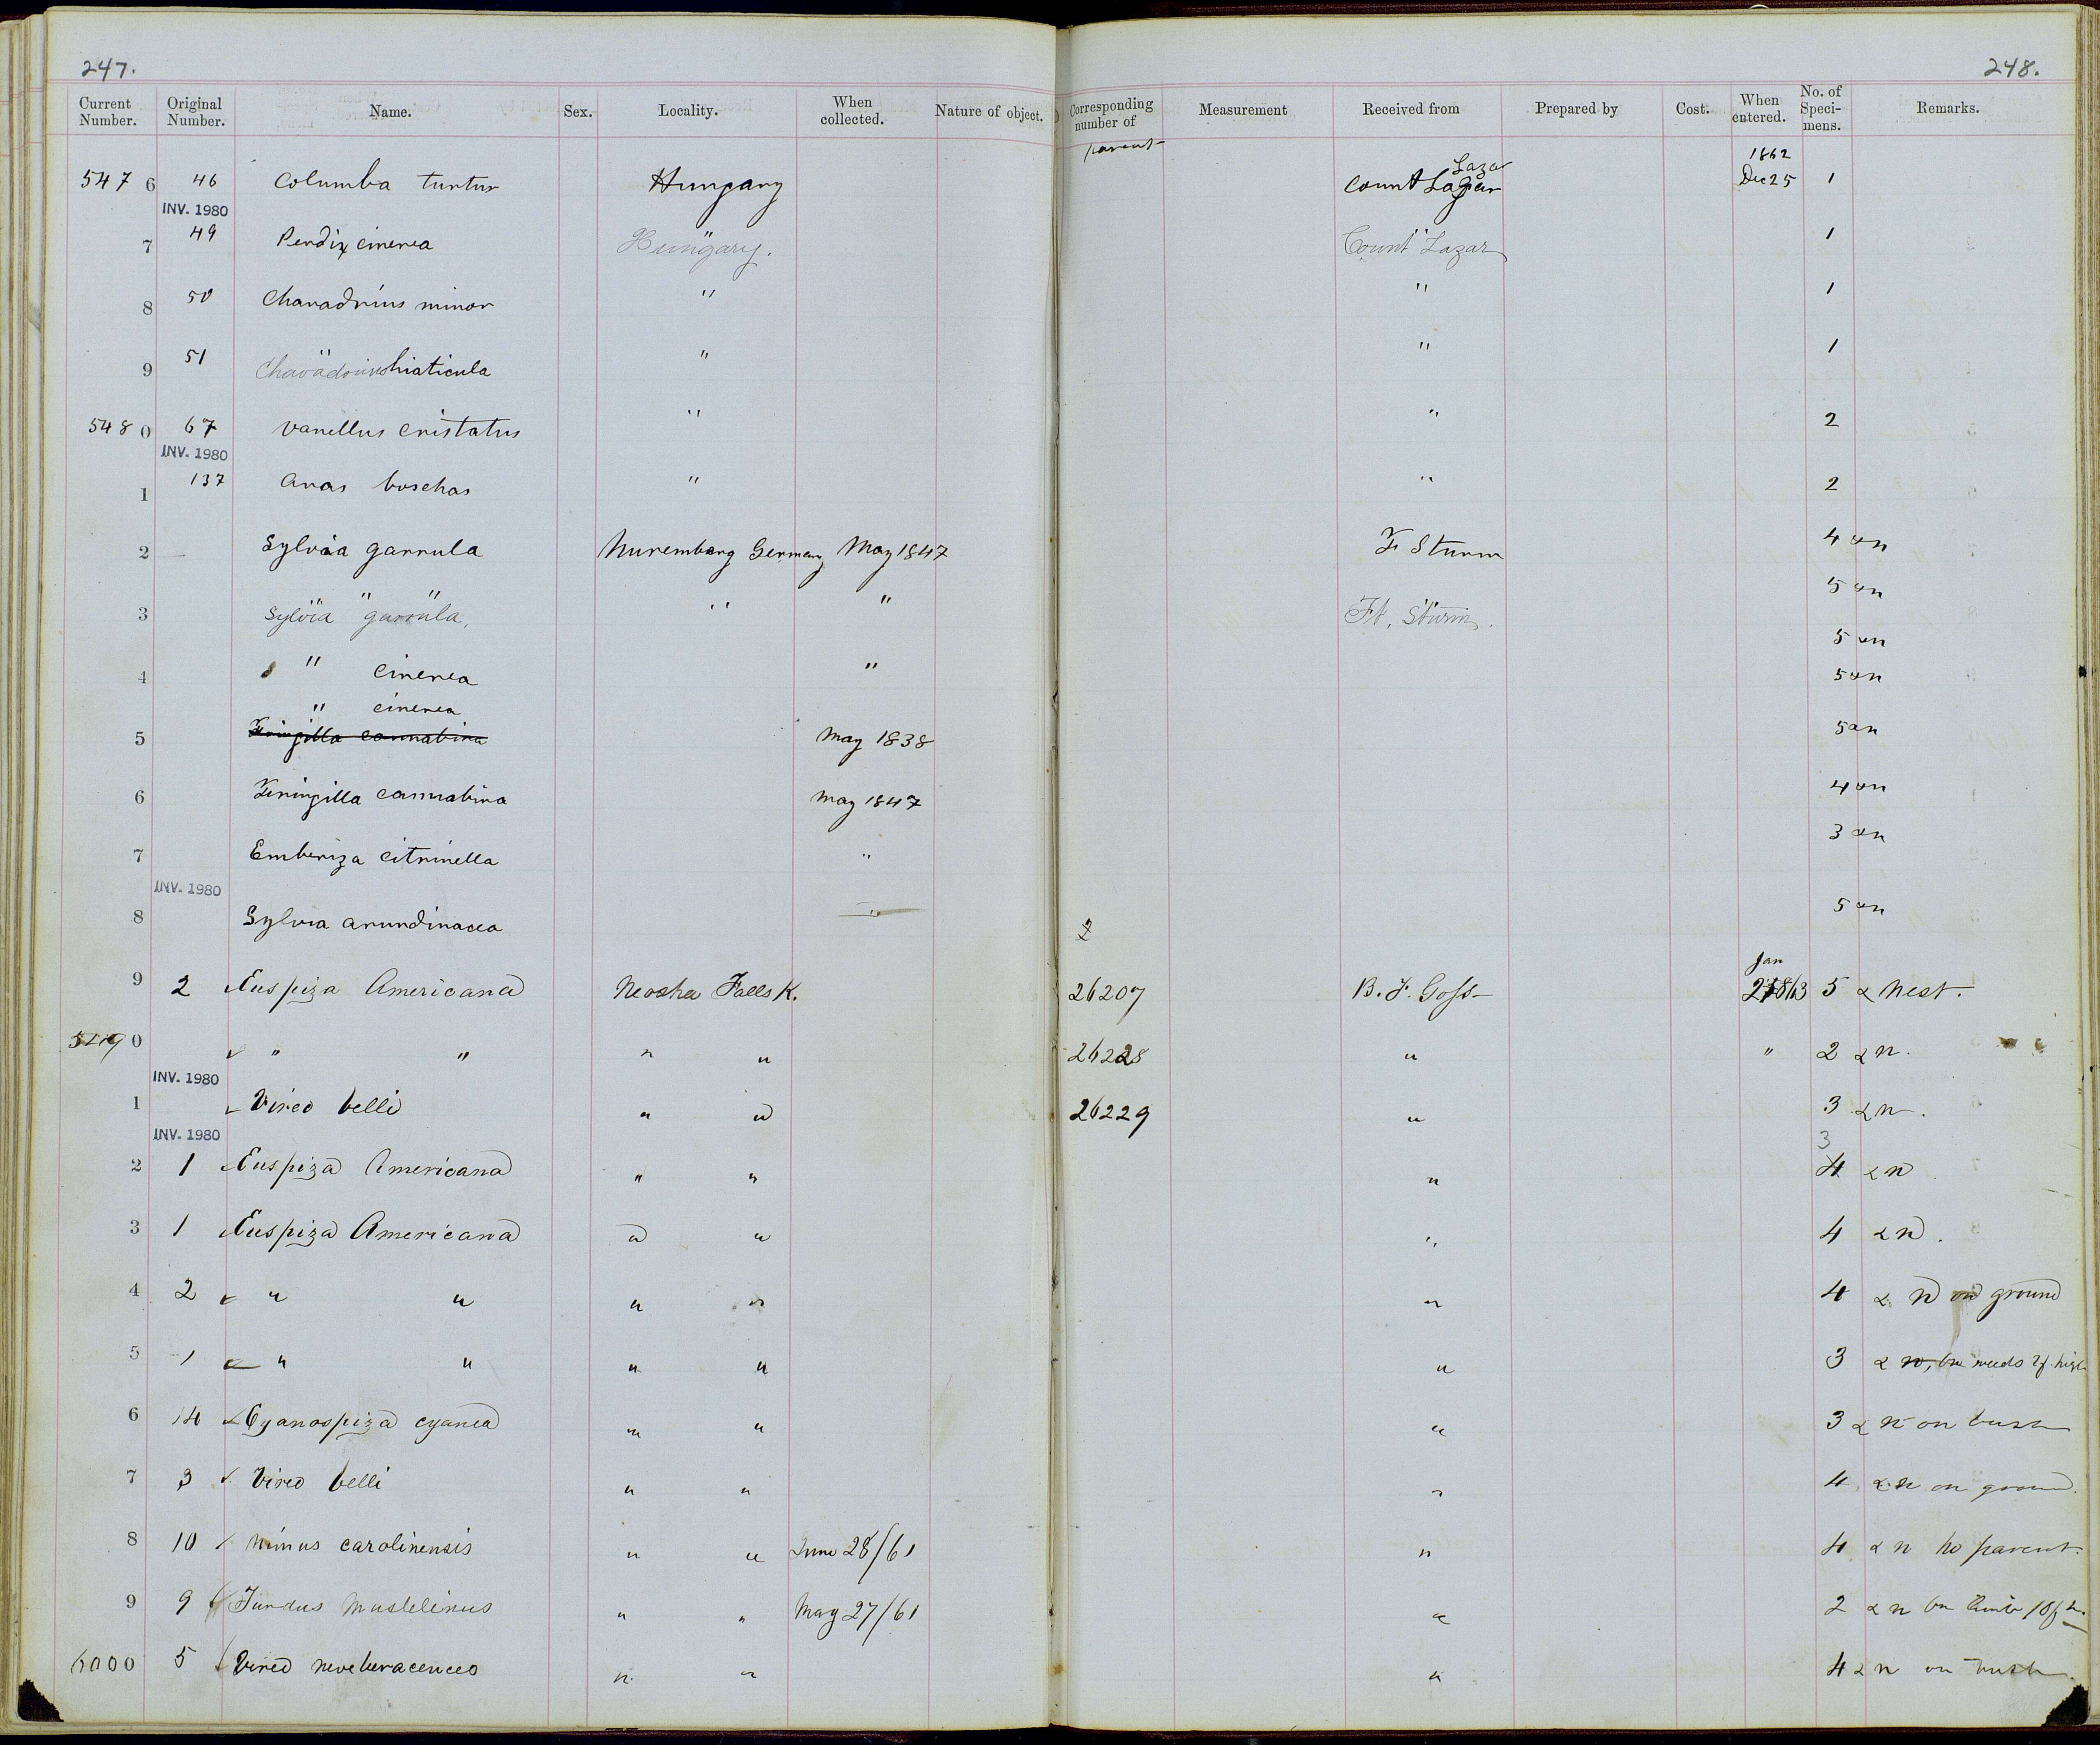 247.
248.
Current Number. Original Number. Name. Sex. Locality. When collected. Nature of object. Corresponding number of parent Measurement Received from Prepared by Cost. When entered. No. of Speci-mens. Remarks.
5476 46 Columba turtur Hungary Count Lazar Lazar 1862 Dec 25 1
INV. 1980
7 49 Perdix cinerea " Hungary. " Count Lazar 1
8 50 Charadrius minor " " 1
9 51 " Charadrius hiaticula " " 1
5480 67 Vanellus cristatus " " 2
INV. 1980
1 137 Anas boschas " " 2
2 — Sylvia garrula Nuremberg Germany May 1847 Fr Sturm 4 & n
3 " " Sylvia garrula, " " " Fr. Sturm. 5 & n
5 & n
4 " cinerea " 5 & n
" cinerea
5 Fringilla cannabina May 1838 5 & n
6 Fringilla cannabina May 1847 4 & n
7 Emberiza citrinella " 3 & n
INV. 1980
8 Sylvia arundinacea " 5 & n
2
9 2 Euspiza Americana Neosha Falls K. 26207 B. F. Goss Jan 2 1863 5 & nest.
5490 " " " " 26228 " " 2 & n.
INV. 1980
1 Vireo belli " " 26229 " 3 & n.
INV. 1980
3
2 1 Euspiza Americana " " " 4 & n
3 1 Euspiza Americana " " " 4 & n.
4 2 " " " " " 4 & n on ground
5 1 " " " " " 3 & n, on weeds 2f. high
6 14 Cyanospiza cyanea " " " 3 & n on bush
7 3 Vireo belli " " " 4 & n on ground.
8 10 Mimus carolinensis " " June 28/61 " 4 & n no parent.
9 9 Turdus mustelinus " " May 27/61 " 2 & n on limb 10f h.
6000 5 Vireo " " " 4 & n on bush.